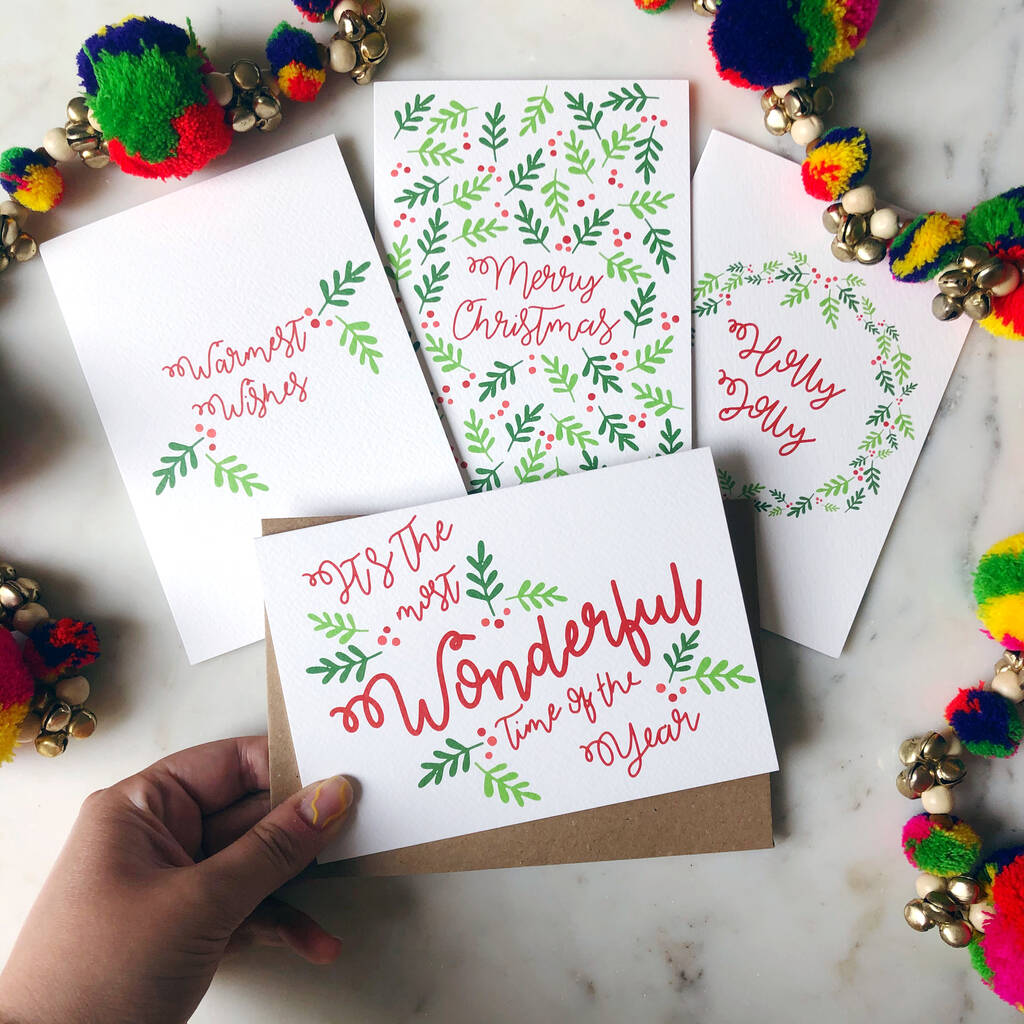 Warmest
Wishes
Merry
Christmas
Holly
Jolly
It's the
most
Wonderful
Time of the
Year